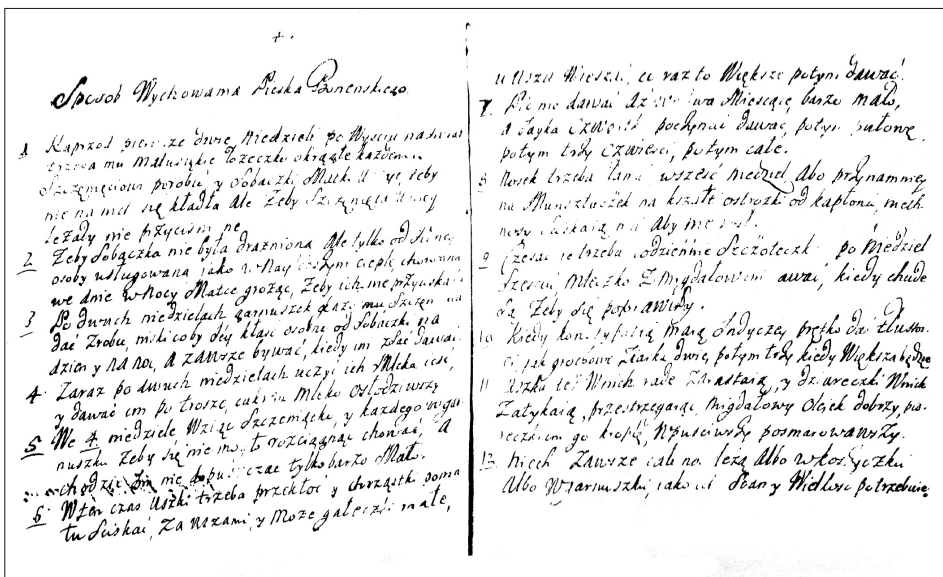 +
Sposob Wychowania Pieska Bononskiego
1 Naprzod pierwsze dwie Niedziele po Wysciu na swiat
trzeba mu Malusiękie łozeczko okrągłe każdemu
Szczęnięciou porobic, y Sobaczki Matk zeby
nie na nich się kładła Ale Zeby Szczęnięta
lezały nie przycisnione
2 Zeby Sobaczka nie była drazniona Ale tylko od
osoby usługowana jako w Nay ciepłe chowana
we dnie w Nocy Matce grożąc, Zeby ich nie przyciskała
3 Po dwuch niedzielach garnuszek każdemu Szczen
dać Zrobic, miski coby Sey kłasc osobne od Sobaczki na
dzien y na noc, A zawsze bywac, kiedy im zsac dawac
4 Zaraz po dwuch niedzielach uczyc ich Mleka iesc,
y dawać im po trosze, cukrem Mleko osłodziwszy
5 We 4 niedziele Wziąc Szczemięcie, y każdego w gar
nuszku Zeby się nie mogł rozciągnąc chować A
chodzic im nie dopuszczac tylko barzo Mało
6 W ten czas Uszki trzeba przekłoc y chrząstki poma
łu Sciskac, Za Razami, y Moze gałeczki małe,
u Uszu Wieszac, co raz to Większe potym dawac.
7. Pic nie dawac Aż we dwa Miesiące, barzo mało,
a Jayka Czwartą poczynac dawac, potym połowę,
potym trzy czwierci, potym całe.
8 Nosek trzeba łamac w szesc niedziel Abo przynamniey
na Munsztuczek na kształt ostrożki od kapłona, niech
nosy sciskaią Aby nie
9 Czesac je trzeba codziennie Szczoteczką po Niedziel
Szesciu Mleczko z Migdałowem dawac, kiedy chude
Są Zeby się poprawiły.
10 Kiedy konstypacią maią Indyczey prętko dac tłustos
ci jak grochowe Ziarka dwie, potym trzy kiedy Większa będzie
11 Uszka też W nich rade Zarastaią, y dziureczki W nich
Zatykaią, przestrzegaiąc, Migdałowy Oleiek dobrzy, pio
reczkiem go kropię, Wpusciwszy posmarowawszy.
12 Niech Zawsze całe noc leżą Albo w koszyczku
Albo W garnuszku, iako ich Stan y Wielkosc potrzebuie